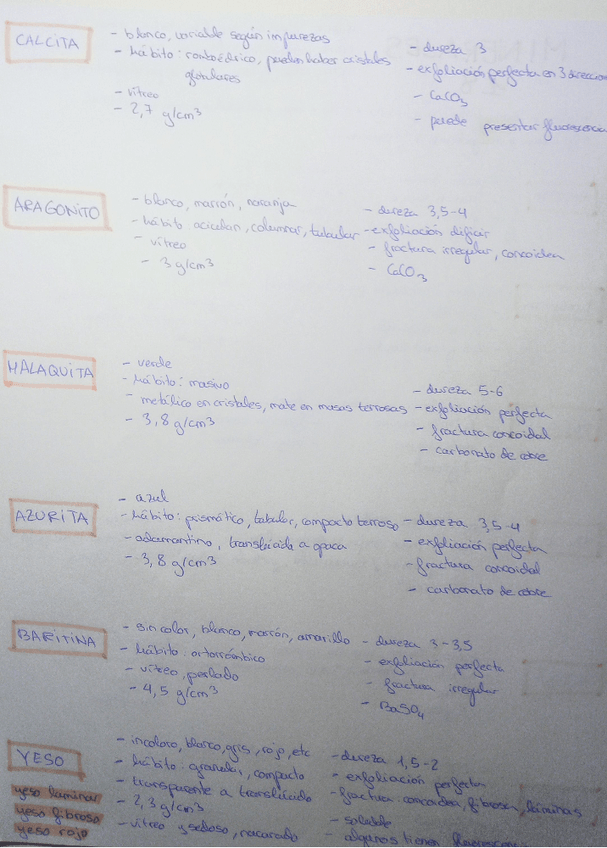 CALCITA
- blanco, variable según impurezas
- hábito: romboédrico, pueden haber cristales
globulares
- vítreo
- 2,7 g/cm³
- dureza 3
- exfoliación perfecta en 3 direccion
- CaCO₃
- puede presentar fluorescencia
ARAGONITO
- blanco, marrón, naranja
- hábito acicular, columnar, tabular
- vítreo
- 3 g/cm³
- dureza 3,5-4
- exfoliación difícil
- fractura irregular, concoidea
- CaCO₃
MALAQUITA
- verde
- hábito: masivo
- metálico en cristales, mate en masas terrosas
- 3,8 g/cm³
- dureza 5-6
- exfoliación perfecta
- fractura concoidal
- carbonato de cobre
AZURITA
- azul
- hábito: prismático, tabular, compacto terroso
- adamantino, translúcida a opaca
- 3,8 g/cm³
- dureza 3,5-4
- exfoliación perfecta
- fractura concoidal
- carbonato de cobre
BARITINA
- sin color, blanco, marrón, amarillo
- hábito: ortorrómbico
- vítreo, perlado
- 4,5 g/cm³
- dureza 3-3,5
- exfoliación perfecta
- fractura irregular
- BaSO₄
YESO
yeso laminar
yeso fibroso
yeso rojo
- incoloro, blanco, gris, rojo, etc
- hábito: granular, compacto
- transparente a translúcido
- 2,3 g/cm³
- vítreo y sedoso, nacarado
- dureza 1,5-2
- exfoliación perfecta
- fractura: concoidea, fibrosa, láminas
- soluble
- algunos tienen